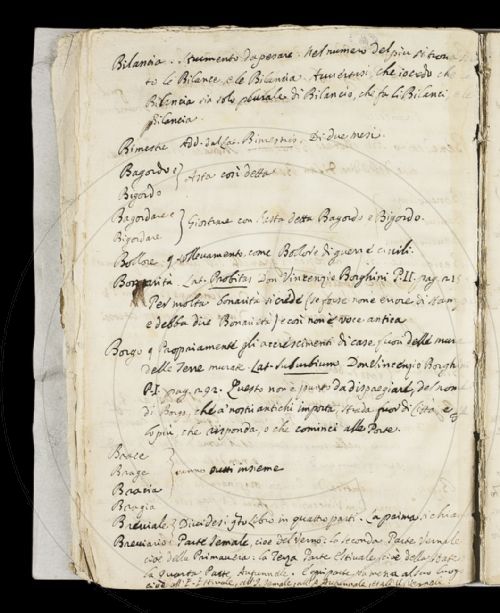 Bilancia. Strumento da pesare. Nel numero del più si trova
to le Bilance, e le Bilancia. Avvertasi, che io credo che
Bilancia sia solo plurale di Bilancio, che fa li Bilanci, e le
Bilancia.
Bimestre Add. dal Lat. Bimestris. Di due mesi.
Bagordo e
Bigordo } Asta così detta
Bagordare e
Bigordare } Giostrare con l'asta detta Bagordo e Bigordo.
Bollore sollevamento, come Bollore di guerre civili.
Bonarità. Lat. Probitas Don Vincenzio Borghini P. II. pag.
Per molta bonarità si crede (se forse non è errore di Stam.
e debba dire Bonarietà) e così non è voce antica
Borgo Propriamente gli accrescimenti di case fuori delle mura
delle Terre murate Lat. Suburbium. Don Vincenzio Borghini
P. I. pag. 292. Questo non è punto da dispregiare, del nome
di Borgo, che a' nostri antichi importa, strada fuor di Città, e
lo più, che risponda, o che cominci alle Porte.
Brace
Brage
Bracia } vanno tutti insieme
Bragia
Breviale Dicevasi Libro in quattro parti. La prima si chiam
Breviario Parte Iemale, cioè del Verno: la seconda, Parte Vernale
cioè della Primavera: la Terza Parte Estivale, cioè della State
la Quarta Parte Autunnale.